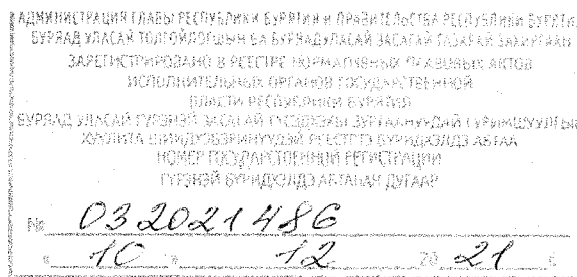 АДМИНИСТРАЦИЯ ГЛАВЫ РЕСПУБЛИКИ БУРЯТИЯ И ПРАВИТЕЛЬСТВА РЕСПУБЛИКИ БУРЯТИЯ
БУРЯАД УЛАСАЙ ТОЛГОЙЛОГШЫН БА БУРЯАД УЛАСАЙ ЗАСАГАЙ ГАЗАРАЙ ЗАХИРГААН
ЗАРЕГИСТРИРОВАНО В РЕЕСТРЕ НОРМАТИВНЫХ ПРАВОВЫХ АКТОВ
ИСПОЛНИТЕЛЬНЫХ ОРГАНОВ ГОСУДАРСТВЕННОЙ
ВЛАСТИ РЕСПУБЛИКИ БУРЯТИЯ
БУРЯАД УЛАСАЙ ГҮРЭНЭЙ ЗАСАГАЙ
РЕЕСТРТЭ БҮРИДХЭЛДЭ АБТАА
НОМЕР ГОСУДАРСТВЕННОЙ РЕГИСТРАЦИИ
ГҮРЭНЭЙ БҮРИДХЭЛДЭ АБТАҺАН ДУГААР
№ 032021486
« 10 » 12 20 21 г.